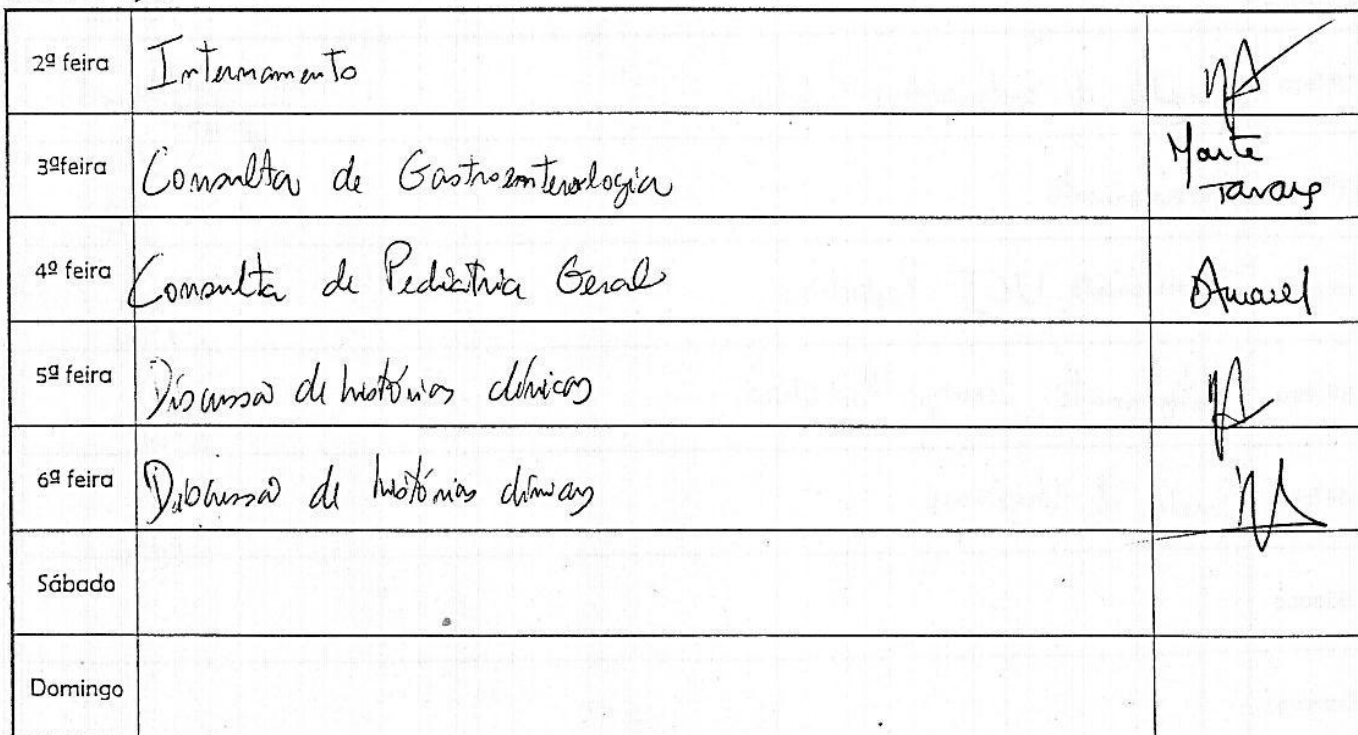 2ª feira Internamento
3ªfeira Consulta de Gastroenterologia
Marta
Tavares
4ª feira Consulta de Pediatria Geral
5ª feira Discussão de histórias clínicas
6ª feira Discussão de histórias clínicas
Sábado
Domingo